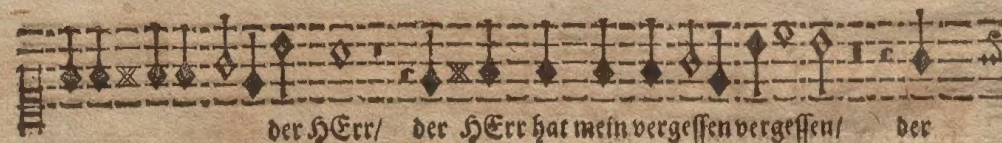 der HErr/ der HErr hat mein vergessen vergessen/ der